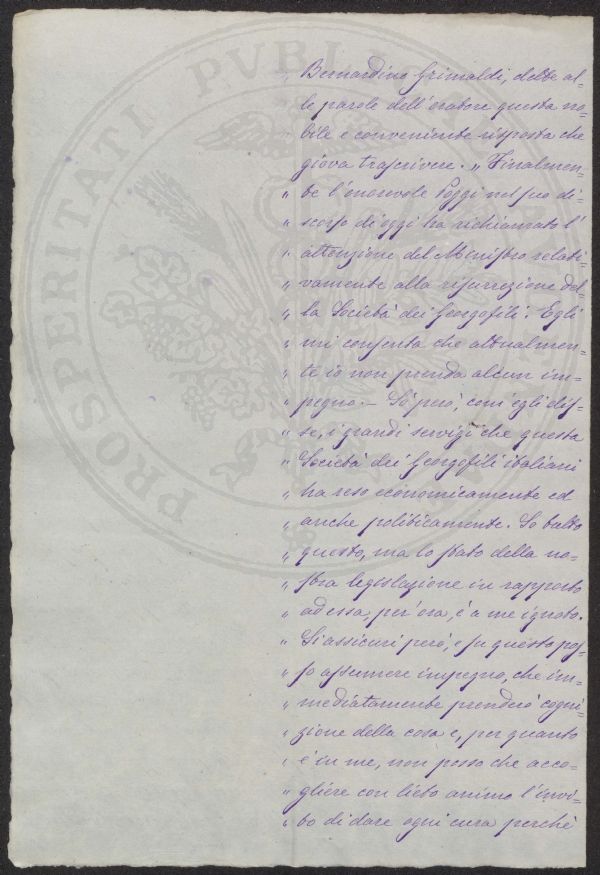 „ Bernardino Grimaldi, dette al=
„ le parole dell'oratore questa no=
„ bile e conveniente risposta che
„ giova trascrivere. „ Finalmen=
„ te l'onorevole Poggi nel suo di=
„ scorso di oggi ha richiamato l'
„ attenzione del Ministro relati=
„ vamente alla risurrezione del=
„ la Società dei Georgofili. Egli
„ mi consenta che attualmen=
„ te io non prenda alcun im=
„ pegno. — So però, com'egli dis=
„ se, i grandi servigi che questa
„ Società dei Georgofili italiani
„ ha reso economicamente ed
„ anche politicamente. So tutto
„ questo, ma lo stato della no=
„ stra legislazione in rapporto
„ ad essa, per ora, è a me ignoto.
„ Si assicuri però, e su questo pos=
„ so assumere impegno, che im=
„ mediatamente prenderò cogni=
„ zione della cosa e, per quanto
„ è in me, non posso che acco=
„ gliere con lieto animo l'invi=
„ to di dare ogni cura perchè
PROSPERITATI PVBLICAE